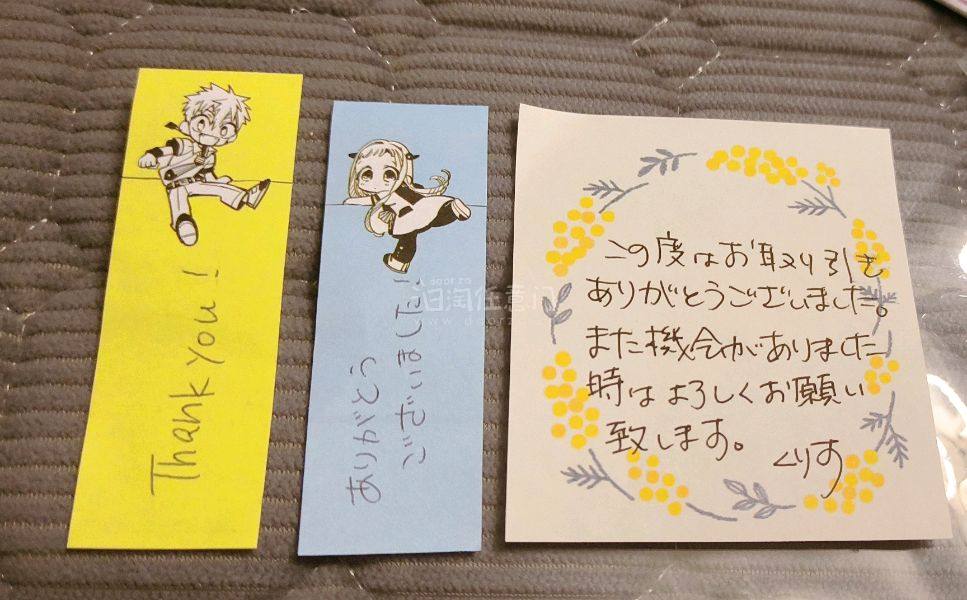 Thank you!
ありがとう
ございました!
この度はお取り引き
ありがとうございました。
また機会がありました
時はよろしくお願い
致します。
くりす
door zo
日淘任意门